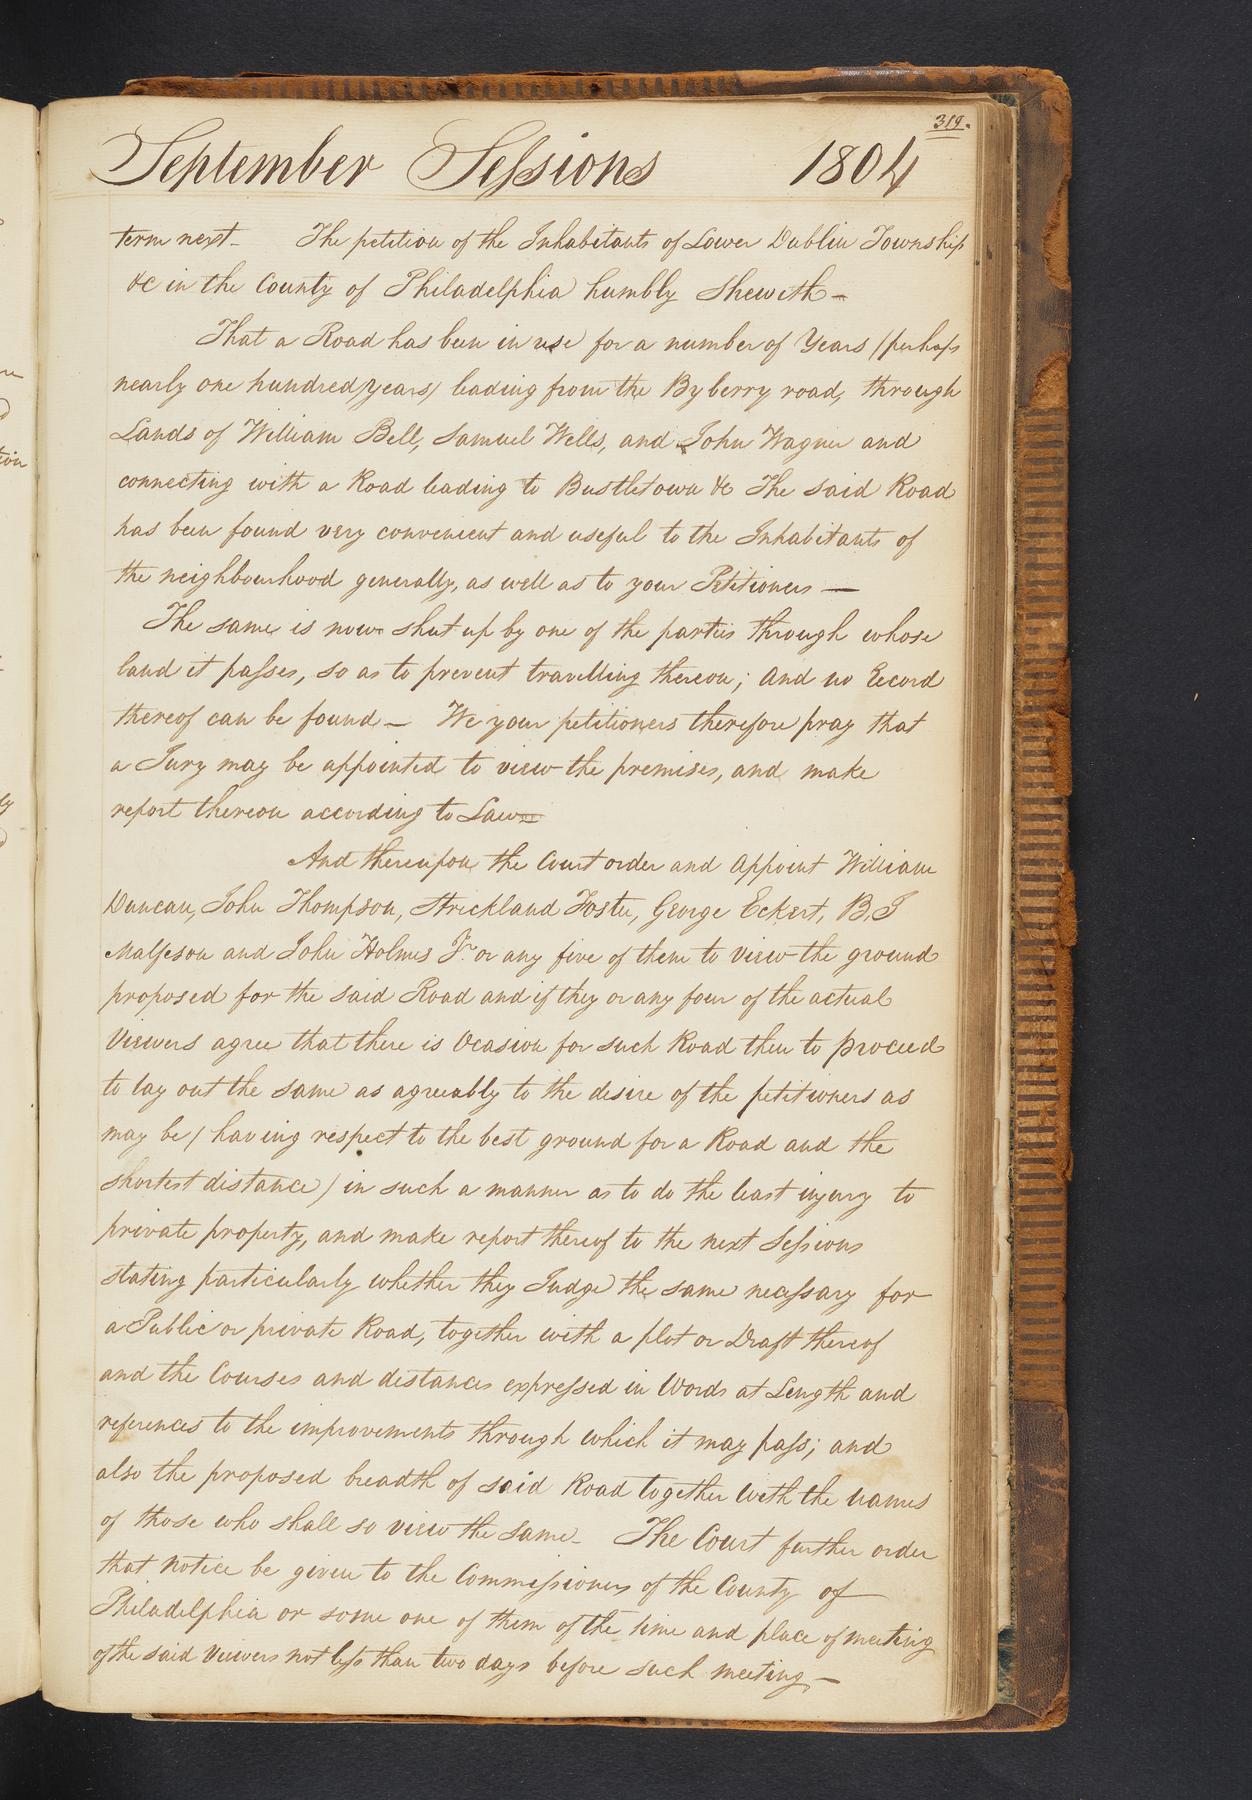 319.
September Sessions 1804
term next- The petition of the Inhabitants of Lower Dublin Township
&c in the County of Philadelphia humbly Sheweth-
That a Road has been in use for a number of Years (perhaps
nearly one hundred years) leading from the Byberry road, through
Lands of William Bell, Samuel Wells, and John Wagner and
connecting with a Road leading to Bustletown &c The said Road
has been found very convenient and useful to the Inhabitants of
the neighbourhood generally, as well as to your Petitioners —
The same is now shut up by one of the parties through whose
land it passes, so as to prevent travelling thereon; And no Record
thereof can be found — We your petitioners therefore pray that
a Jury may be appointed to view the premises, and make
report thereon according to Law
And thereupon the Court order and Appoint William
Duncan, John Thompson, Strickland Foster, George Eckert, B. J
and John Holmes Jr. or any five of them to view the ground
proposed for the said Road and if they or any four of the actual
Viewers agree that there is Ocasion for such Road then to proceed
to lay out the same as agreeably to the desire of the petitioners as
may be (having respect to the best ground for a Road and the
shortest distance) in such a manner as to do the least injury to
private property, and make report thereof to the next Sessions
stating particularly whether they Judge the same necessary for
a Public or private Road, together with a plot or Draft thereof
and the Courses and distances expressed in Words at Length and
references to the improvements through which it may pass; and
also the proposed breadth of said Road together with the names
of those who shall so view the same. The Court further order
that notice be given to the Commissioners of the County of
Philadelphia or some one of them of the time and place of meeting
of the said Viewers not less than two days before such meeting —